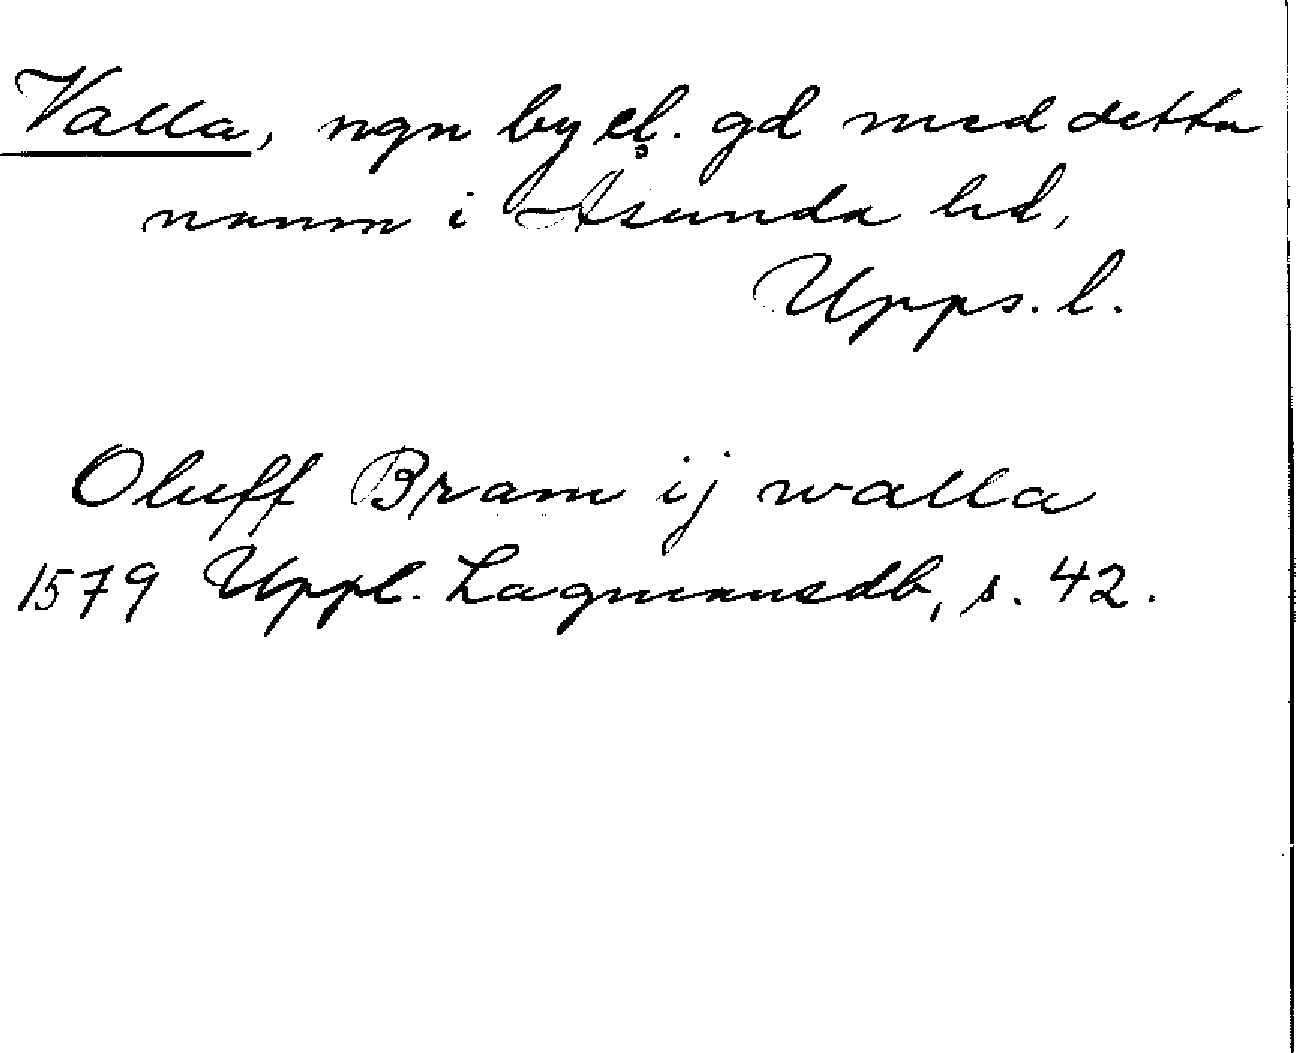 Valla, ngn by el. gd med detta
namn i Åsunda hd,
Upps. l.
Oluff Bram ij walla
1579 Uppl. Lagmansdb, s. 42.